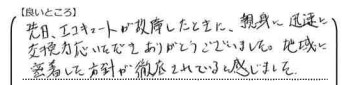 【良いところ】
先日、エコキュートが故障したときに、親身に迅速に
交換対応いただきありがとうございました。地域に
密着した方針が徹底されていると感じました。